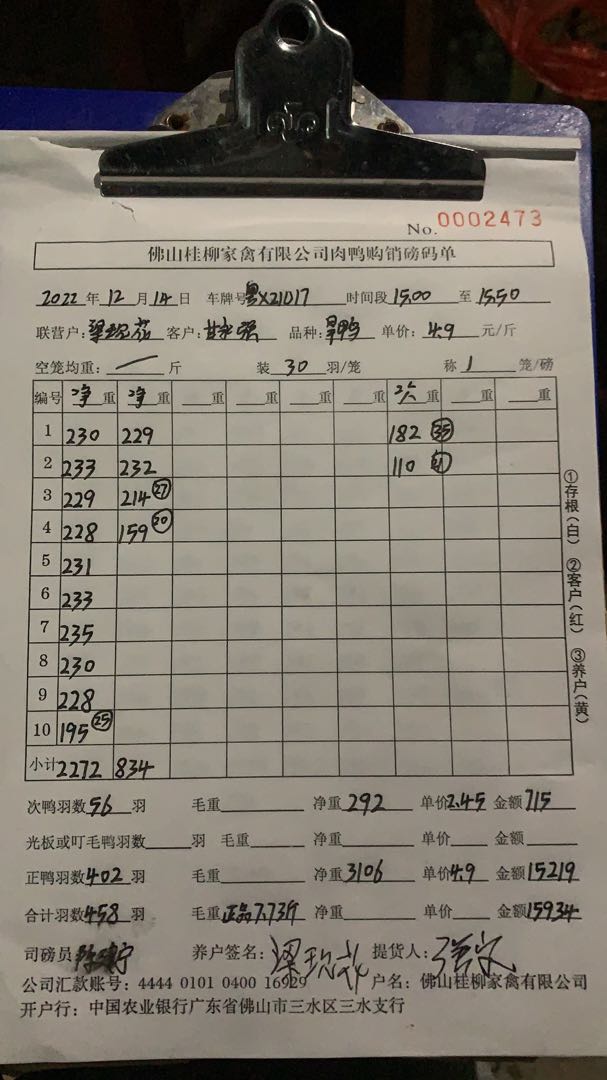 No. 0002473
佛山桂柳家禽有限公司肉鸭购销磅码单
2022 年 12 月 14 日 车牌号 粤X21D17 时间段 15.00 至 15.50
联营户: 客户: 甘 强 品种: 鸭 单价: 4.9 元/斤
空笼均重: 一 斤 装 30 羽/笼 称 1 笼/磅
编号 净 重 净 重 重 重 重 重 次 重 重 重
1 230 229 182 35
2 233 232 110 21
3 229 214 27
4 228 159 20
5 231
6 233
7 235
8 230
9 228
10 195 25
小计 2272 834
次鸭羽数 56 羽 毛重 净重 292 单价 2.45 金额 715
光板或叮毛鸭羽数 羽 毛重 净重 单价 金额
正鸭羽数 402 羽 毛重 净重 3106 单价 4.9 金额 15219
合计羽数 458 羽 毛重 正品7.73斤 净重 单价 金额 15934
司磅员 养户签名: 提货人:
公司汇款账号: 4444 0101 0400 16929 户名: 佛山桂柳家禽有限公司
开户行: 中国农业银行广东省佛山市三水区三水支行
①存根(白) ②客户(红) ③养户(黄)